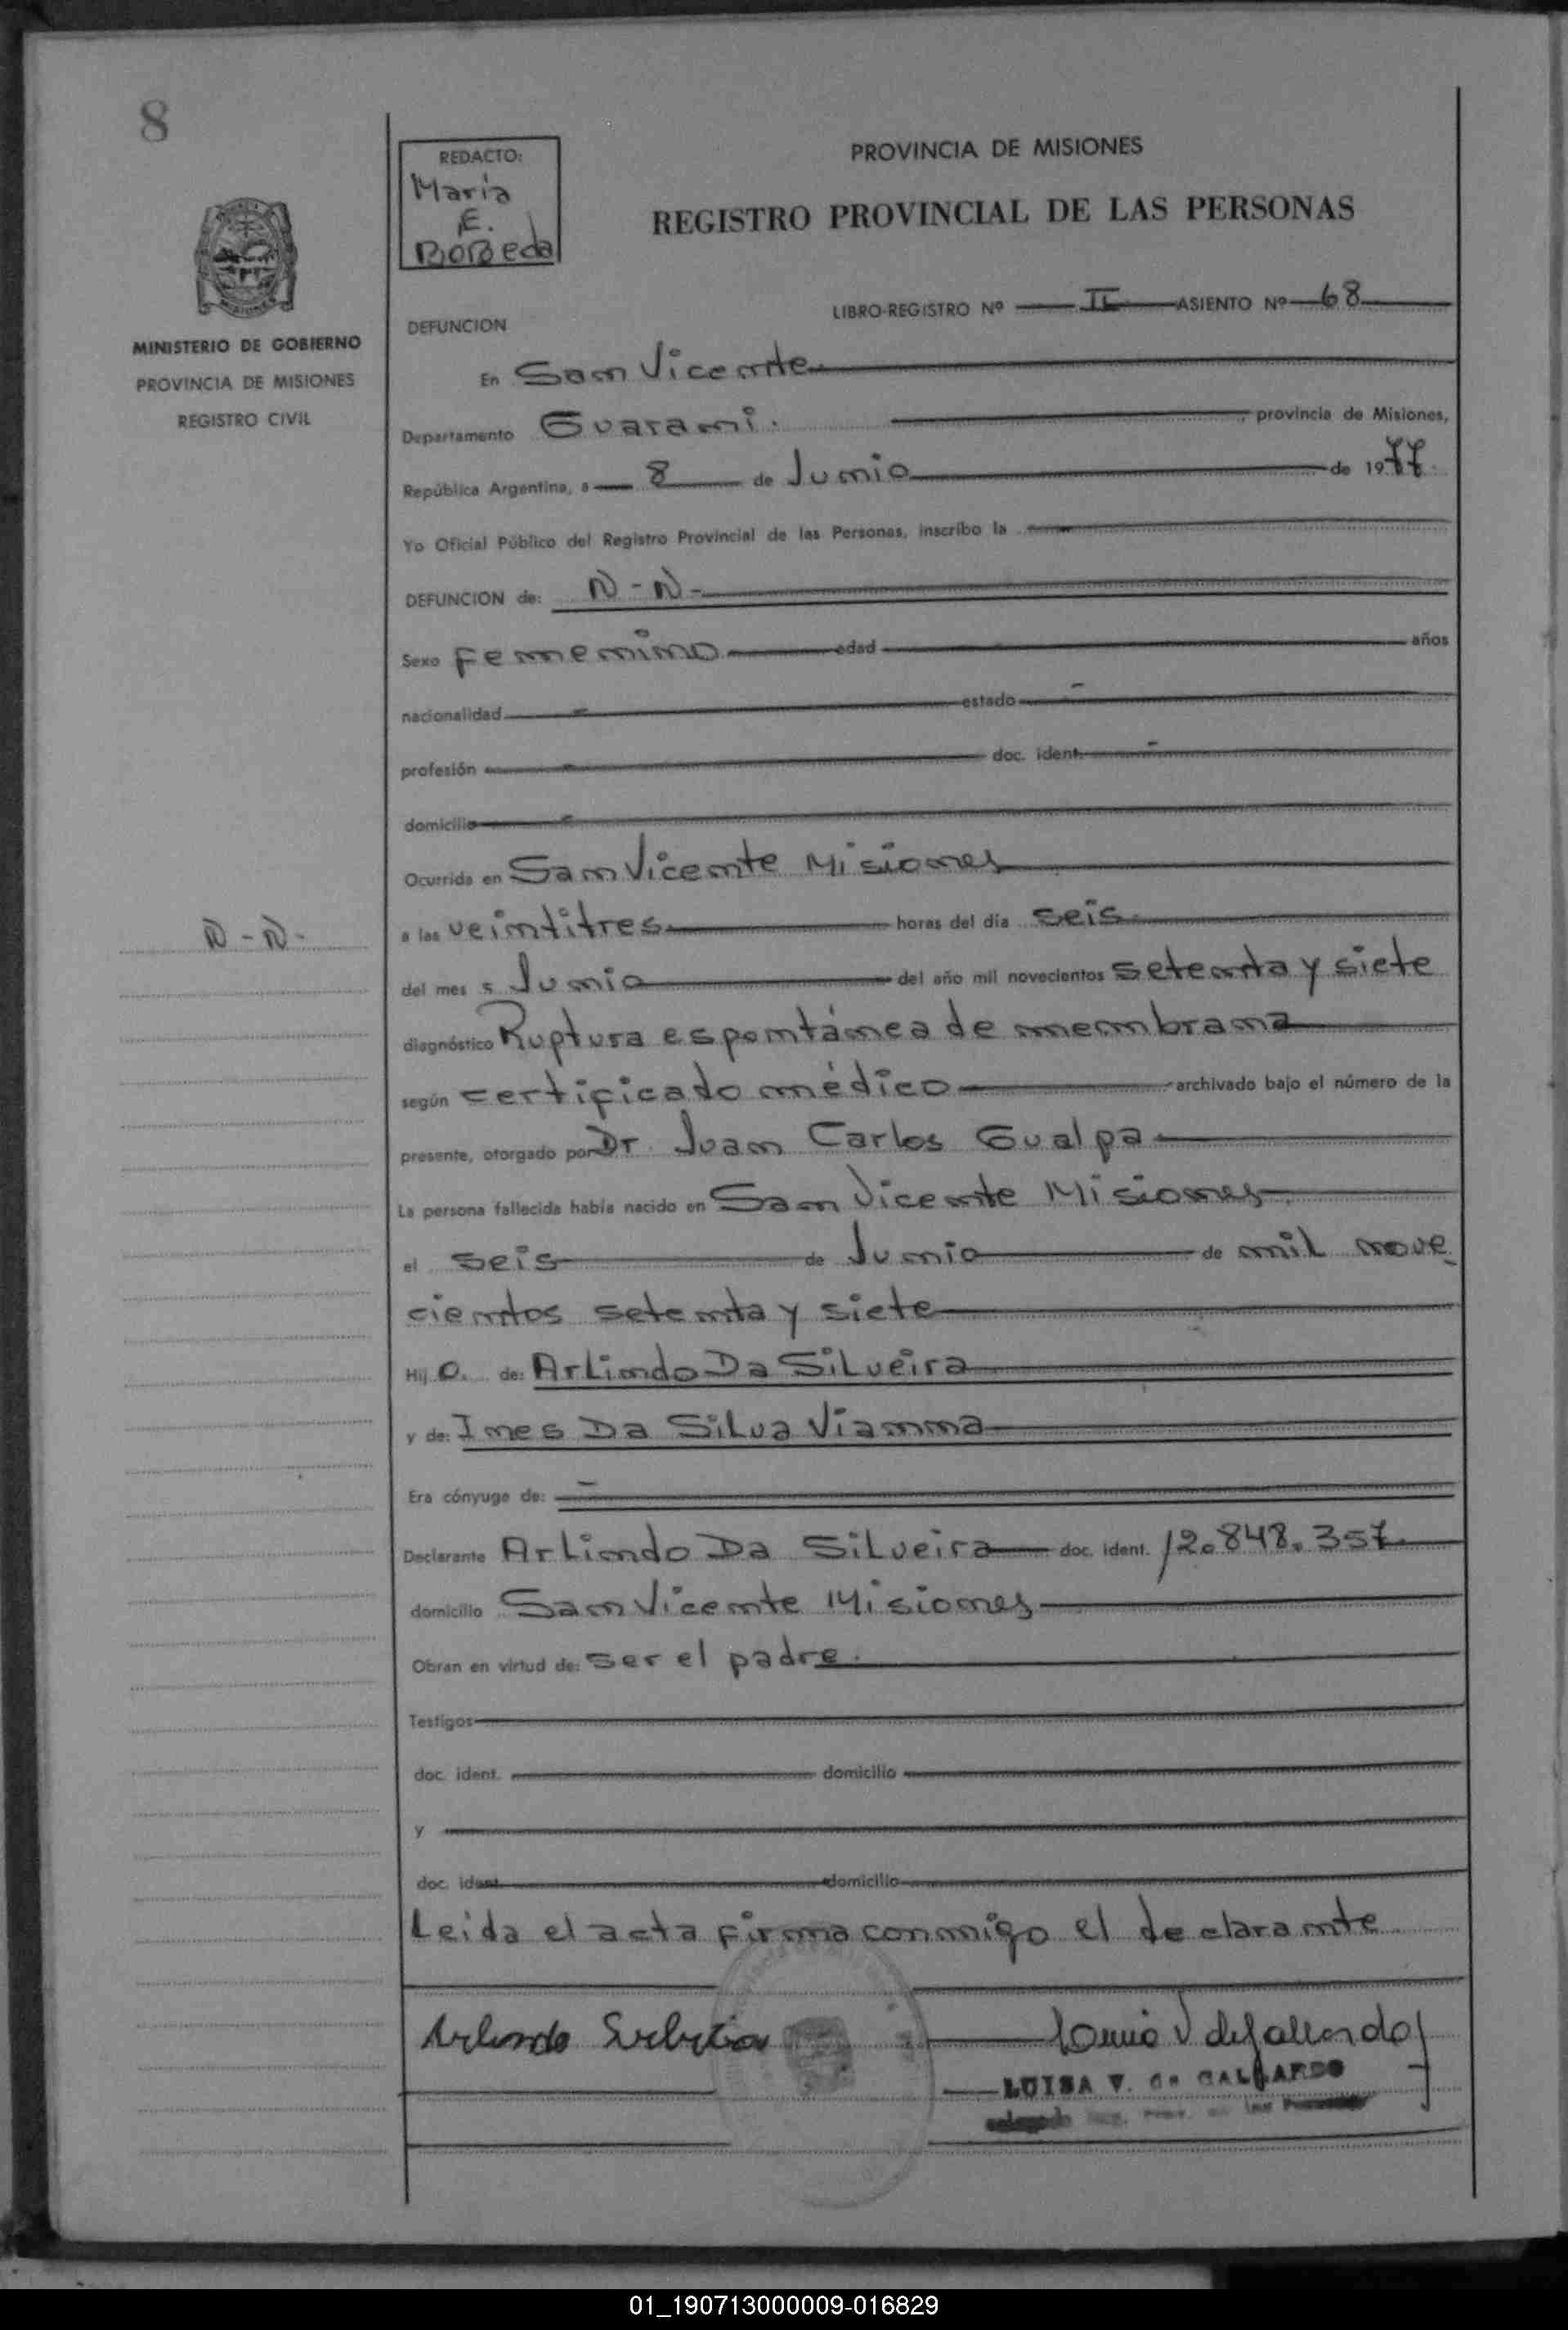 8
REDACTO:
Maria
E.
BOBeda
PROVINCIA DE MISIONES
REGISTRO PROVINCIAL DE LAS PERSONAS
MINISTERIO DE GOBIERNO
PROVINCIA DE MISIONES
REGISTRO CIVIL
LIBRO-REGISTRO Nº II ASIENTO Nº 68
DEFUNCION
En San Vicente
Departamento Guarani. , provincia de Misiones,
República Argentina, a 8 de Junio de 1977.
Yo Oficial Público del Registro Provincial de las Personas, inscribo la
DEFUNCION de: N-N-
Sexo Femenino edad años
nacionalidad estado
profesión doc. ident.
domicilio
Ocurrida en San Vicente Misiones
N-N-
a las veintitres horas del día seis
del mes Junio del año mil novecientos setenta y siete
diagnóstico Ruptura espontánea de membrana
según certificado médico archivado bajo el número de la
presente, otorgado por Dr. Juan Carlos Gualpa
La persona fallecida había nacido en San Vicente Misiones
el seis de Junio de mil nove
cientos setenta y siete
Hij o. de: Arlindo Da Silveira
y de: Ines Da Silva Vianna
Era cónyuge de:
Declarante Arlindo Da Silveira doc. ident. 12.848.357
domicilio San Vicente Misiones
Obran en virtud de: ser el padre.
Testigos
doc. ident. domicilio
y
doc. ident. domicilio
Leida el acta firma conmigo el declarante
LUISA V. de GALLARDO
01_190713000009-016829